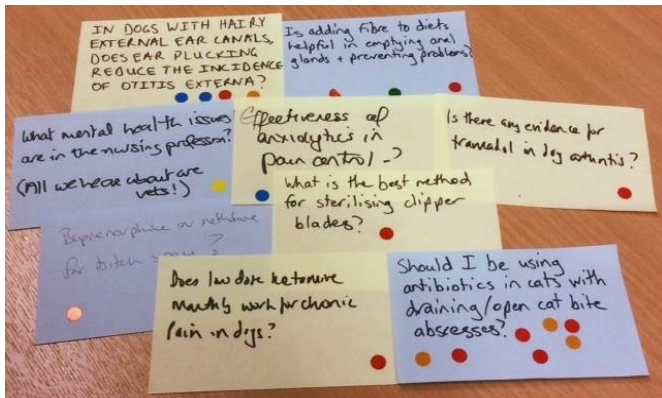 IN DOGS WITH HAIRY
EXTERNAL EAR CANALS,
DOES EAR PLUCKING
REDUCE THE INCIDENCE
OF OTITIS EXTERNA?
Is adding fibre to diets
helpful in emptying anal
glands + preventing problems?
What mental health issues
are in the nursing profession?
(All we hear about are
vets!)
Effectiveness of
anxiolytics in
pain control -?
Is there any evidence for
tramadol in dog arthritis?
What is the best method
for sterilising clipper
blades?
Buprenorphine or methadone
for bitch spay?
Does low dose ketamine
monthly work for chronic
pain in dogs?
Should I be using
antibiotics in cats with
draining/open cat bite
abscesses?